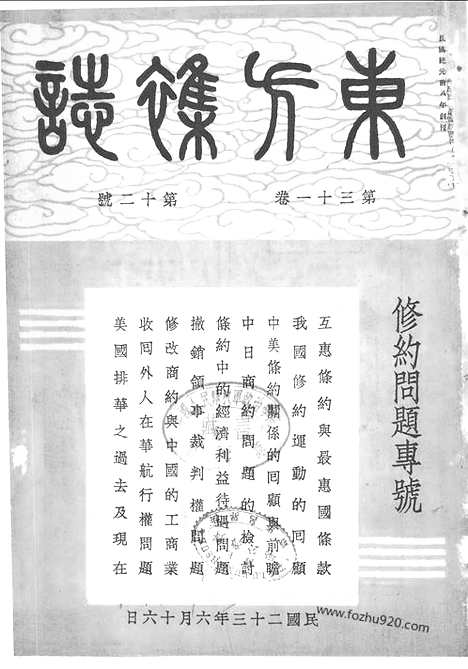 民國紀元前八年創刊
東方雜誌
第三十一卷
第十二號
修約問題專號
互惠條約與最惠國條款
我國修約運動的回顧
中美條約關係的回顧與前瞻
中日商約問題的檢討
條約中的經濟利益待遇問題
撤銷領事裁判權問題
修改商約與中國的工商業
收囘外人在華航行權問題
美國排華之過去及現在
民國二十三年六月十六日
www.fozhu920.com